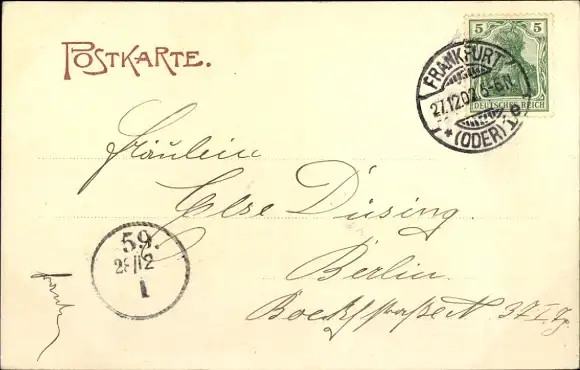 POSTKARTE.
5 5
DEUTSCHES REICH
FRANKFURT
27.12.02. 5-6N.
* (ODER) 1 e
Fräulein
Else Düsing
Berlin
59.
28/12
1
Boeckhstraße N 37 I.